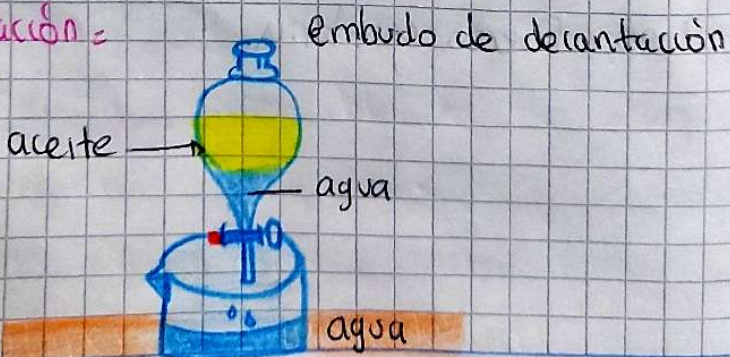 embudo de decantación
aceite
agua
agua